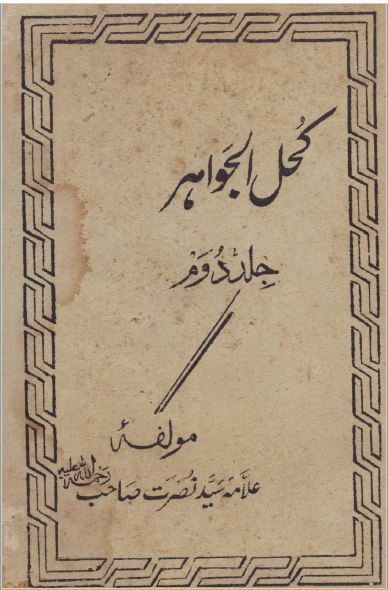 کُحل الجَواہر
جِلد دُوَم
مولفہٗ
علامہ سَیّد نُصرَت صاحب رحمۃ اللہ علیہ